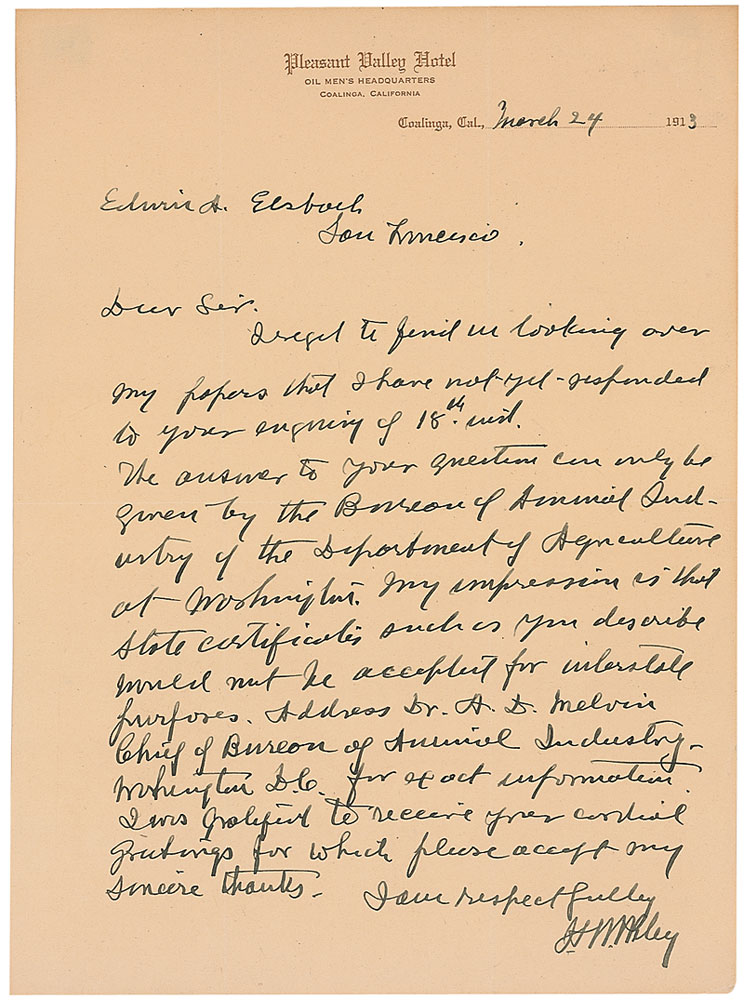 Pleasant Valley Hotel
OIL MEN'S HEADQUARTERS
COALINGA, CALIFORNIA
Coalinga, Cal., March 24 1913
Edwin A. Elsbach
San Francisco.
Dear Sir.
I regret to find in looking over
my papers that I have not yet responded
to your enquiry of 18th. inst.
The answer to your question can only be
given by the Bureau of Animal Ind-
ustry of the Department of Agriculture
at Washington. My impression is that
State certificates such as you describe
would not be accepted for interstate
purposes. Address Dr. A. D. Melvin
Chief of Bureau of Animal Industry-
Washington D.C. for exact information.
I was gratified to receive your cordial
greetings for which please accept my
sincere thanks. I am respectfully
H W Wiley